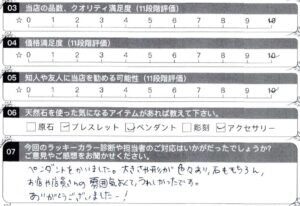 03 当店の品数、クオリティ満足度（11段階評価）
☆ 0 1 2 3 4 5 6 7 8 9 10
04 価格満足度（11段階評価）
☆ 0 1 2 3 4 5 6 7 8 9 10
05 知人や友人に当店を勧める可能性（11段階評価）
☆ 0 1 2 3 4 5 6 7 8 9 10
06 天然石を使った気になるアイテムがあれば教えて下さい。
☆ □原石 ☑ブレスレット ☑ペンダント □彫刻 ☑アクセサリー
07 今回のラッキーカラー診断や担当者のご対応はいかがだったでしょうか？
ご意見やご感想をお聞かせください。
ペンダントをかいました。大きさや形が色々あり、石ももちろん、
お店や店員さんの雰囲気よくて、うれしかったです。
ありがとうございましたー！